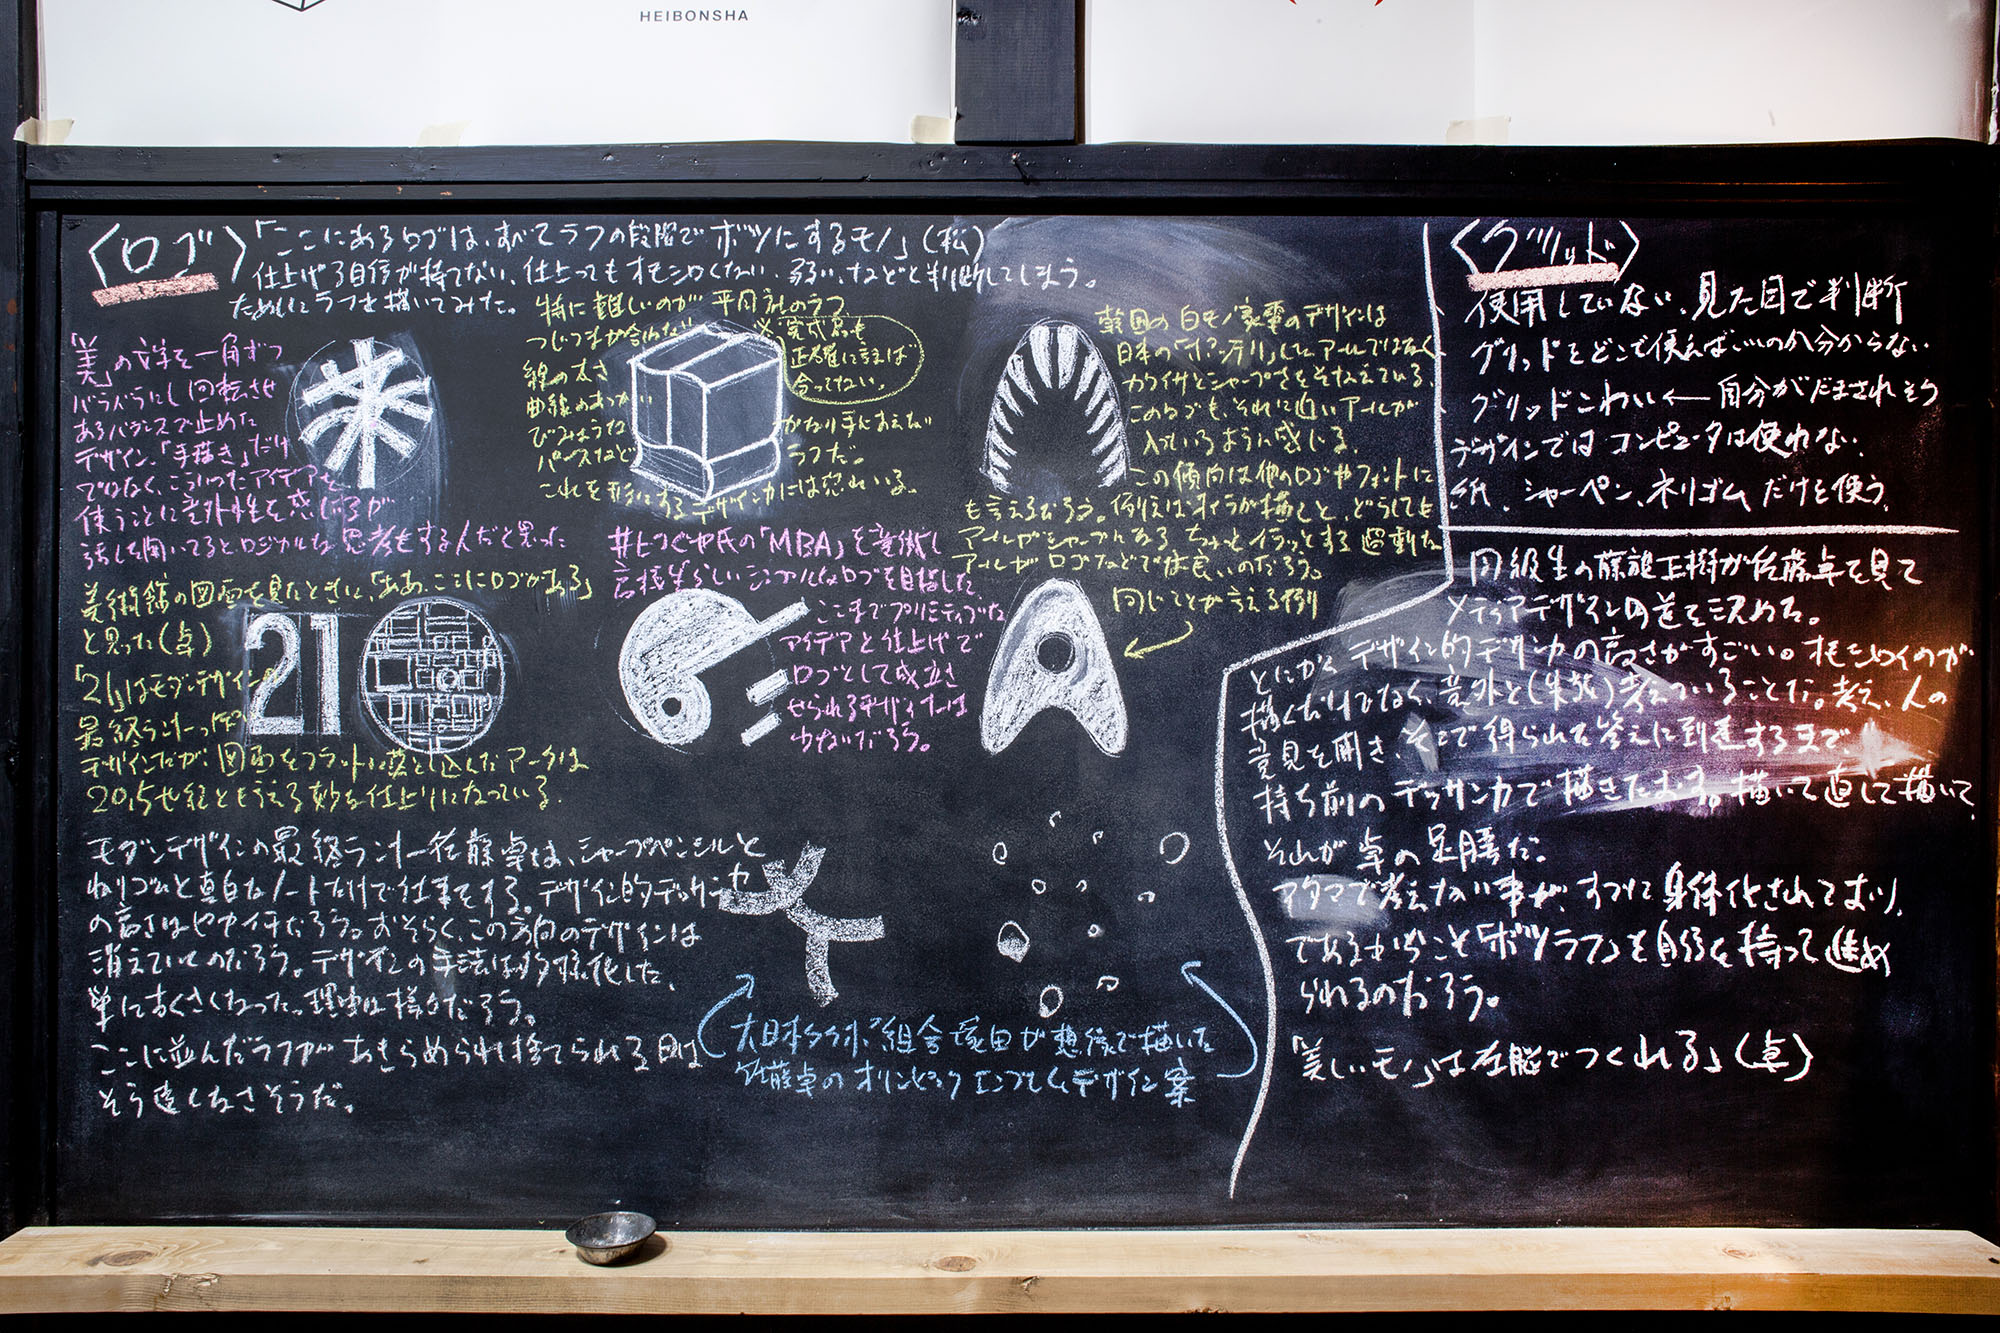 HEIBONSHA
〈ロゴ〉
「ここにあるロゴは、すべてラフの段階でボツにするモノ」(松)
仕上げる自信が持てない、仕上ってもオモシロくない、弱い、などと判断してしまう。
ためしにラフを描いてみた。
「美」の文字を一角ずつ
バラバラにし回転させ
あるバランスで止めた
デザイン。「手描き」だけ
ではなく、こういったアイデアを
使うことに意外性を感じるが
話しを聞いてるとロジカルな思考をする人だと思った
特に難しいのが平凡社のラフ
つじつまが合わない
線の太さ
曲線のあつかい
びみょうな
パースなど
完成品も
正確に言えば
合ってない。
かなり手におえない
ラフだ。
これを形にするデザインカには恐れいる。
韓国の白モノ家電のデザインは
日本の「ボンテリ」したアールではなく
カワイサとシャープさをそなえている。
このロゴも、それに近いアールが
入っているように感じる。
この傾向は他のロゴやフォントに
も言えるだろう。例えばオイラが描くと、どうしても
アールがシャープになる ちょっとイラッとする 過剰な
アールがロゴなどでは良いのだろう。
同じことが言える例
美術館の図面を見たときに、「ああ、ここにロゴがある」
と思った(卓)
「21」はモダンデザインの
最終ランナーっぽい
デザインだが、図面をフラットに落とし込んだマークは
20.5世紀ともうえる妙な仕上りになっている。
井上つぐや氏の「MBA」を意識し
高校生らしいシンプルなロゴを目指した
ここまでプリミティブな
アイデアと仕上げで
ロゴとして成立さ
せられるデザイナーは
少ないだろう。
21
モダンデザインの最終ランナー佐藤卓は、シャープペンシルと
ねりゴムと真白なノートだけで仕事をする。デザイン的デッサンカ
の高さはピカイチだろう。おそらく、この方向のデザインは
消えていくのだろう。デザインの手法は多様化した、
単におくさくなった。理由は様々だろう。
ここに並んだラフが あきらめられ捨てられる日は
そう遠くなさそうだ。
大日本タイポ組合塚田が想像で描いた
佐藤卓のオリンピックエンブレムデザイン案
〈グリッド〉
使用していない、見た目で判断
グリッドをどこで使えばいいのか分からない
グリッドこわい←自分がだまされそう
デザインではコンピュータは使れない。
紙、シャーペン、ネリゴムだけを使う。
同級生の藤幡正樹が佐藤卓を見て
メディアデザインの道を決めた。
とにかくデザイン的デッサンカの高さがすごい。オモシロイのが
描くだけでなく、意外と(失敬)考えていることだ。考え、人の
意見を聞き、そこで得られた答えに到達するまで、
持ち前のデッサンカで描きたおす。描いて直して描いて、
それが卓の足腰だ。
アタマで考えてない事が、すでに身体化されており、
であるからこそ「ボツラフ」を自信を持って進め
られるのだろう。
「美しいモノ」は左脳でつくれる」(卓)